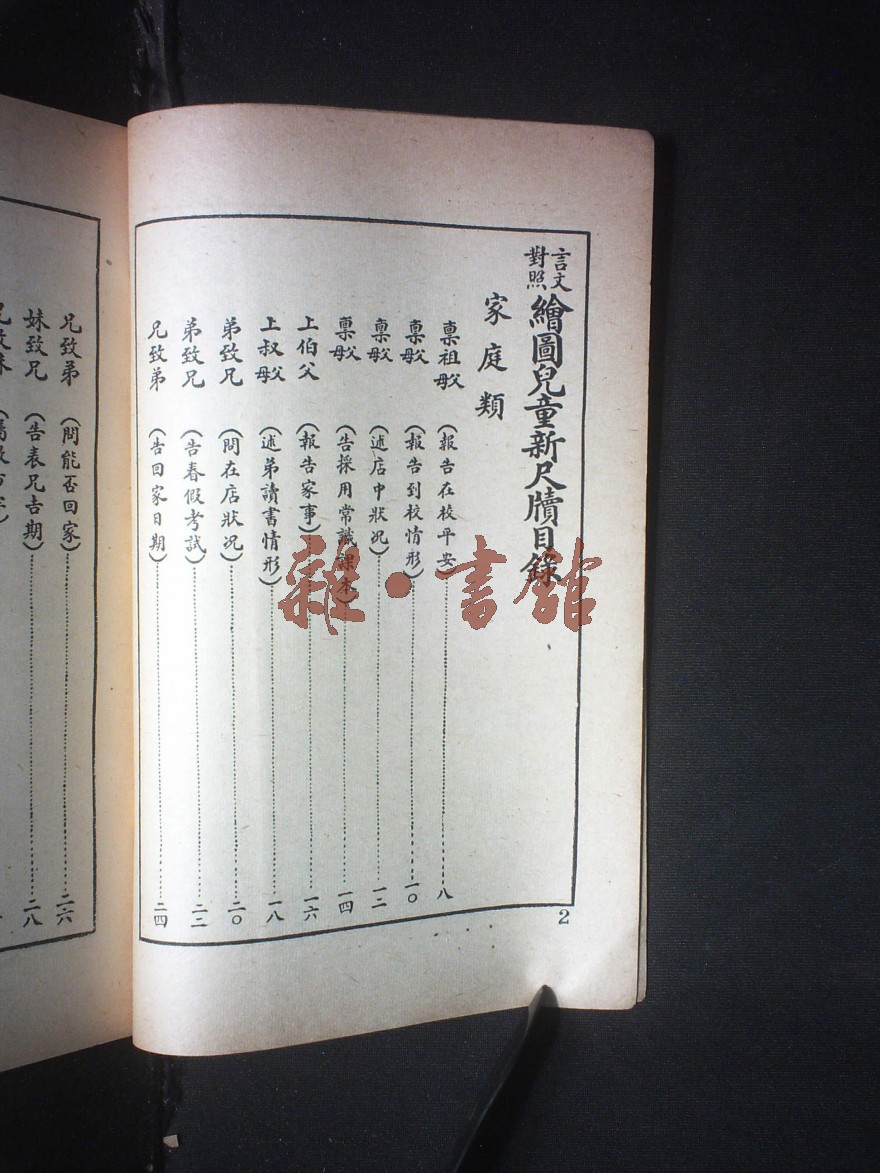 言文對照繪圖兒童新尺牘目錄
家庭類
稟祖父母（報告在校平安）八
稟父母（報告到校情形）一〇
稟父母（述店中狀況）一二
稟父母（告採用常識課本）一四
上伯父（報告家事）一六
上叔父母（述弟讀書情形）一八
弟致兄（問在店狀況）二〇
弟致兄（告春假考試）二二
兄致弟（告回家日期）二四
2
兄致弟（問能否回家）二六
妹致兄（告表兄吉期）二八
雜·書館